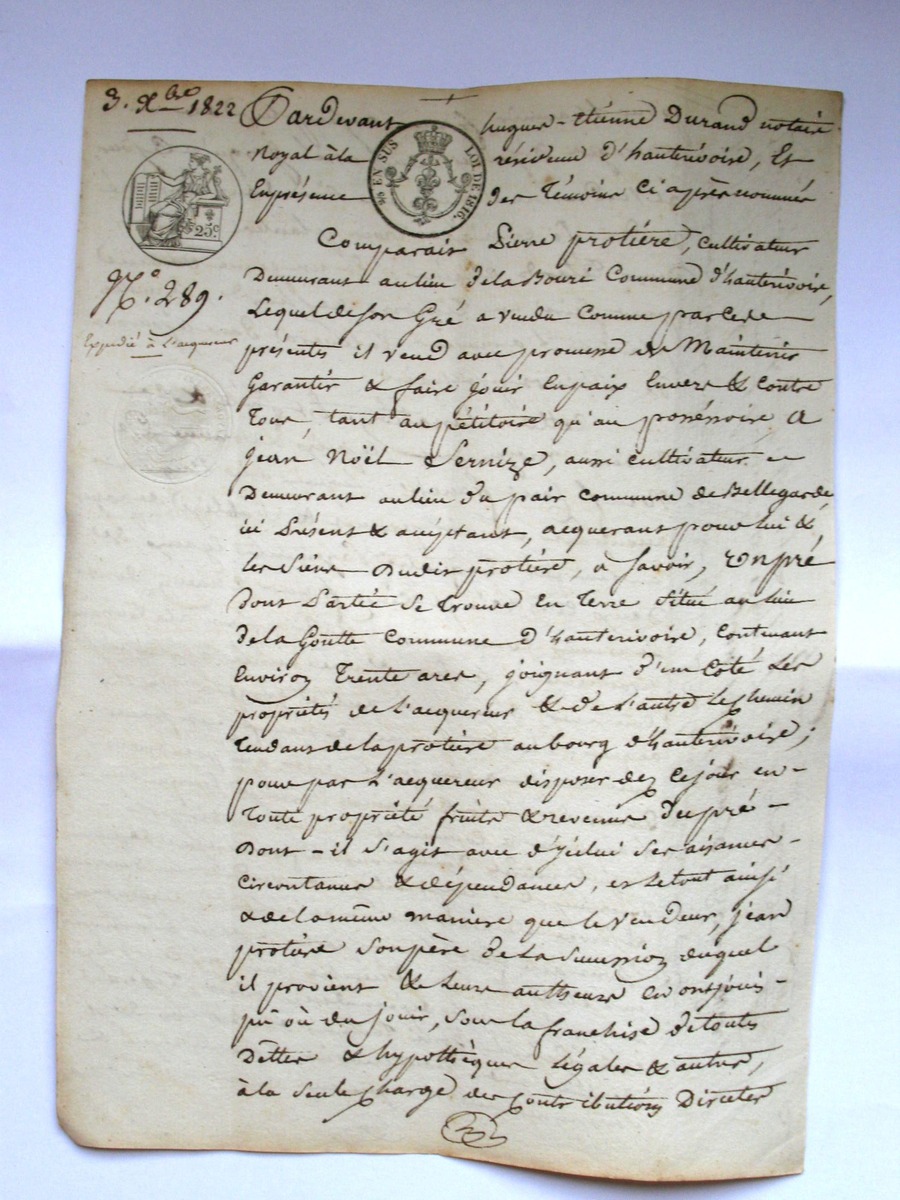 3. Xbre 1822
Pardevant hugues-étienne Durand notaire
Royal à la résidence d'hauterivoire, Et
En présence des Témoins Ci après nommés
% EN SUS LOI DE 1816.
25c.
N°. 289.
Expedié à l'acquereur
Comparait Pierre protière, cultivateur
Demeurant au lieu de la Bouré Commune d'hauterivoire,
Lequel de son Gré a vendu Comme par Ces
présentes il vend avec promesse de Maintenir
Garantir & faire jouir En paix Envers & Contre
Tous, tant au pétitoire qu'au posséssoire, A
jean Noël Sernize, aussi cultivateur
Demeurant au lieu du pair commune de Bellegarde,
ici Présent & acceptant, acquerant pour lui &
les Siens dudit protière, a Savoir, Un pré
Dont Partie Se trouve En Terre Situé au lieu
de la Goutte Commune D'hauterivoire, Contenant
Environ Trente ares, joignant d'un Côté Les
propriétés de L'acquereur & de L'autre Le Chemin
Tendant de la protière au bourg d'hauterivoire;
pour par L'acquereur disposer dez Ce jour en
Toute propriété fruits & revenus Du pré
Dont-il S'agit avec d'Jcelui Ses aisances
Circontances & dépendances, et Le tout ainsi
& de la même maniere que le Vendeur, jean
protière Son père de La Succession duquel
il provient & Leurs autheurs En ont joui
pû où du jouir, Sous La franchise de toutes
Dettes & hypothèques Légales & autres,
à la Seule Charge des Contributions Directes